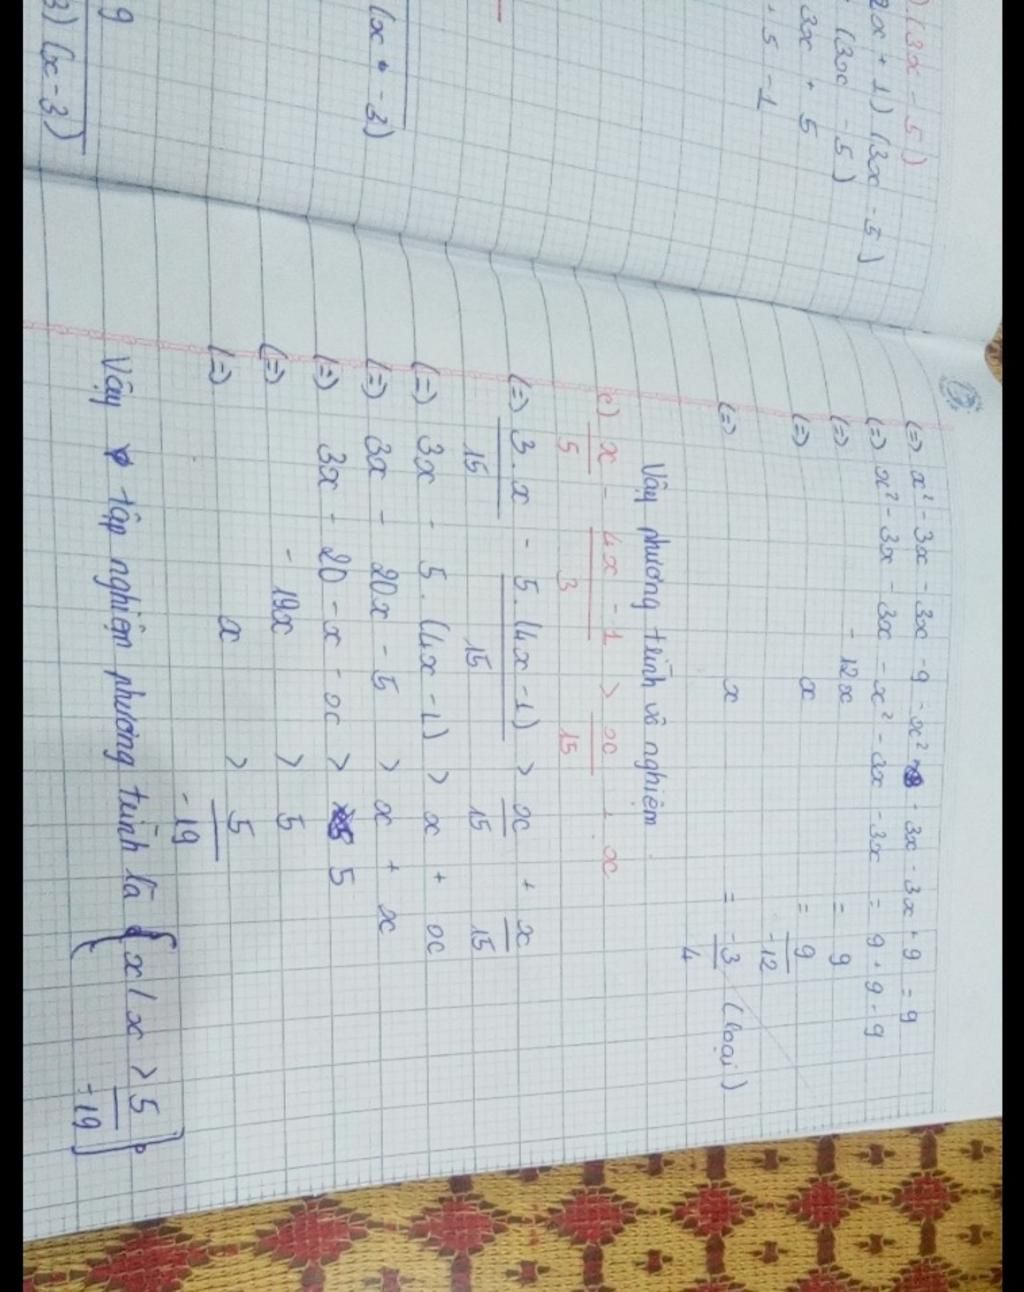 ) (3x - 5)
2x + 1) (3x - 5)
(3x - 5)
3x + 5
. 5 - 1
(x - 3)
9
3) (x - 3)
(=) x² - 3x - 3x - 9 - x² - 3x - 3x + 9 = 9
(=) x² - 3x - 3x - x² - 3x - 3x = 9 + 9 - 9
(=) - 12x = 9
(=) x = 9/-12
(=) x = -3/4 (loại)
Vậy phương trình vô nghiệm
c) x/5 - 4x - 1/3 > x/15 + x
(=) 3.x/15 - 5.(4x - 1)/15 > x/15 + x/15
(=) 3x - 5.(4x - 1) > x + x
(=) 3x - 20x - 5 > x + x
(=) 3x - 20 - x - x > 5
(=) - 19x > 5
(=) x > 5/-19
Vậy tập nghiệm phương trình là {x / x > 5/-19}